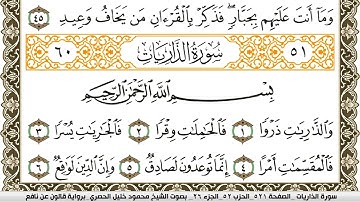 وَمَا أَنتَ عَلَيْهِم بِجَبَّارٍ فَذَكِّرْ بِالْقُرْءَانِ مَن يَخَافُ وَعِيدِ ٤٥
٦٠ سُورَةُ الذَّارِيَاتِ ٥١
بِسْمِ اللَّهِ الرَّحْمَٰنِ الرَّحِيمِ
وَالذَّارِيَاتِ ذَرْوًا ١ فَالْحَامِلَاتِ وِقْرًا ٢ فَالْجَارِيَاتِ يُسْرًا ٣
فَالْمُقَسِّمَاتِ أَمْرًا ٤ إِنَّمَا تُوعَدُونَ لَصَادِقٌ ٥ وَإِنَّ الدِّينَ لَوَاقِعٌ ٦
سورة الذاريات _ الصفحة ٥٢١_ الحزب ٥٢_ الجزء ٢٦_ بصوت الشيخ محمود خليل الحصري برواية قالون عن نافع